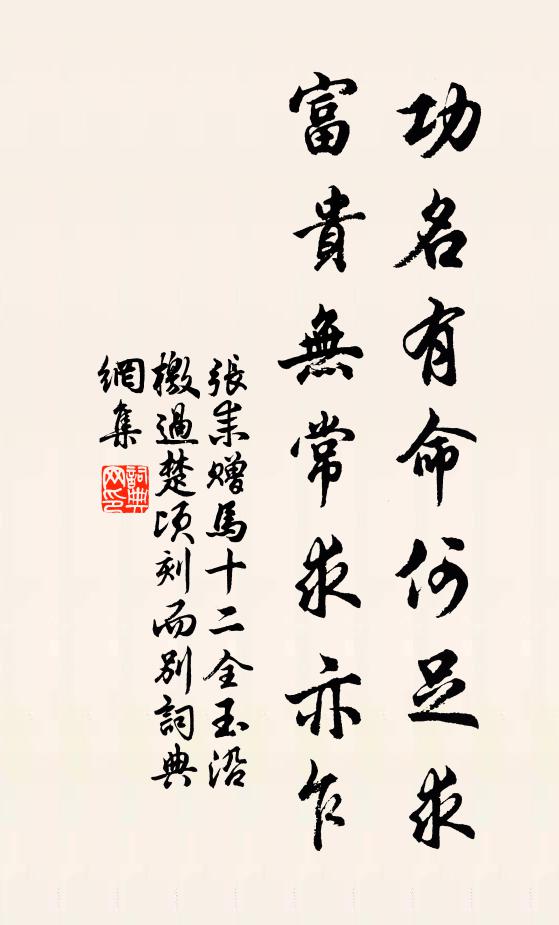 功名有命何足求
富貴無常求亦乍
張耒贈馬十二全玉沿
檄過楚頃刻而別詞典
網集
詞典網印